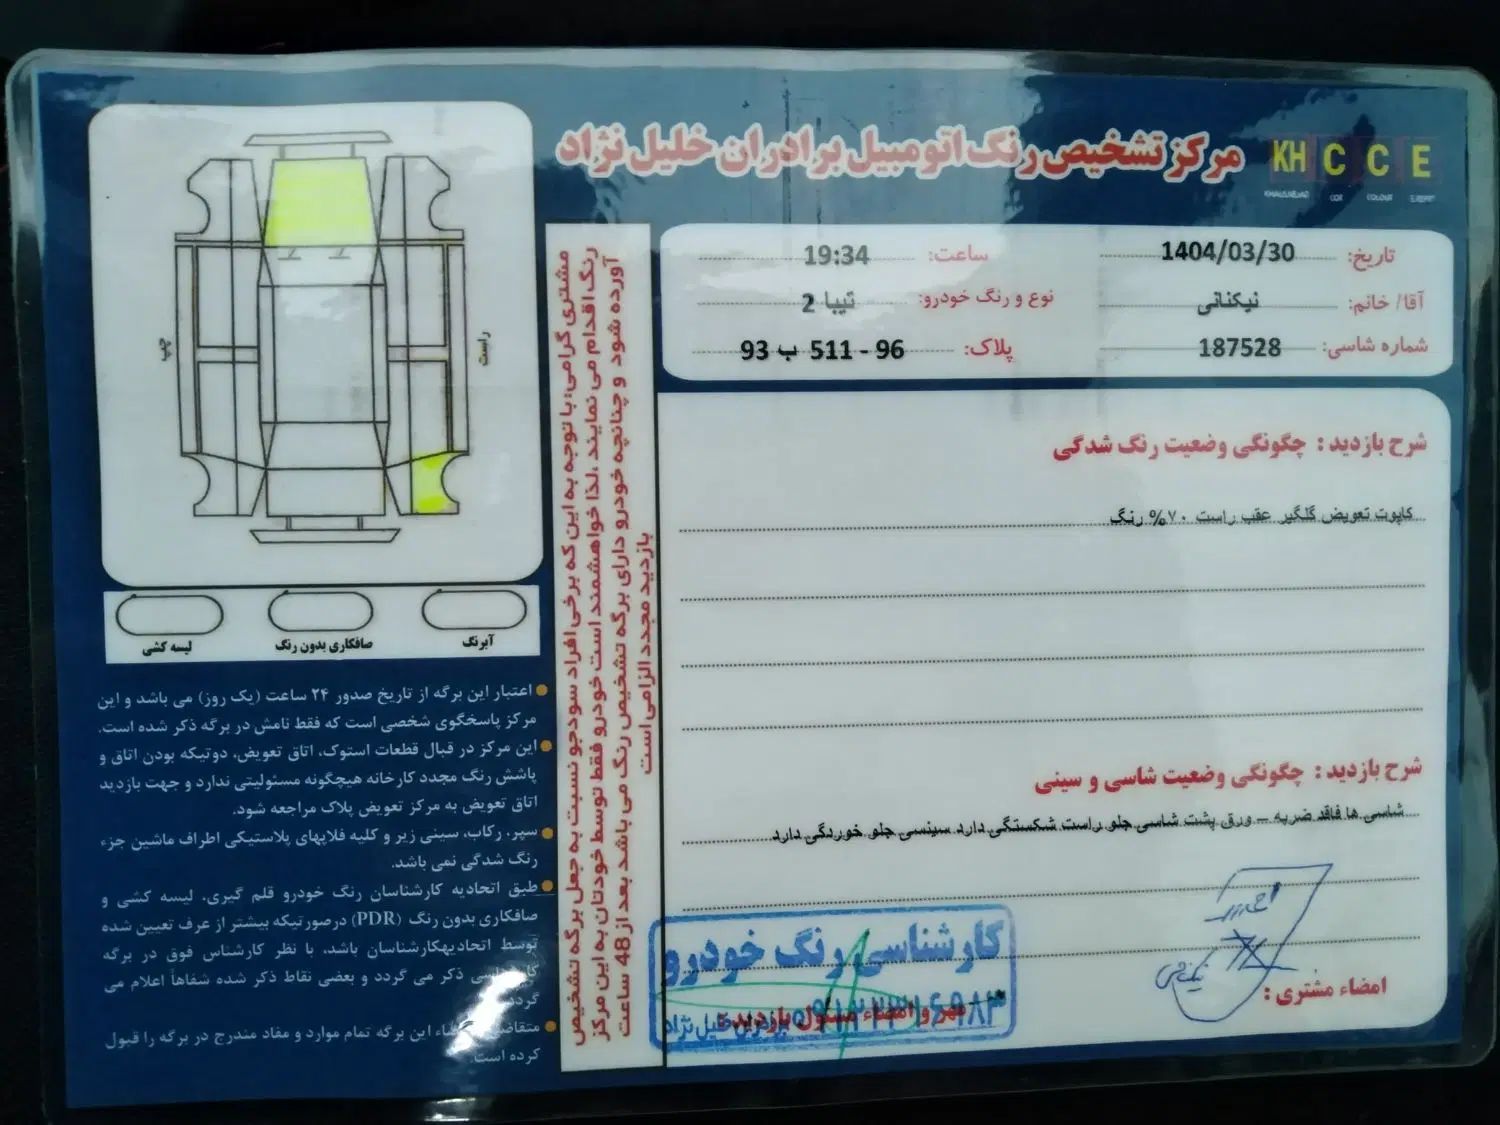 مرکز تشخیص رنگ اتومبیل برادران خلیل نژاد
KH C C E
تاریخ: 1404/03/30
ساعت: 19:34
آقا/ خانم: نیکنائی
نوع و رنگ خودرو: تیبا 2
شماره شاسی: 187528
پلاک: 96 - 511 ب 93
شرح بازدید : چگونگی وضعیت رنگ شدگی
کاپوت تعویض گلگیر عقب راست ۷۰% رنگ
شرح بازدید : چگونگی وضعیت شاسی و سینی
شاسی ها فاقد ضربه – ورق پشت شاسی جلو راست شکستگی دارد سینسی جلو خوردگی دارد
امضاء مشتری :
مهر و امضاء مسئول بازدید :
کارشناسی رنگ خودرو
برادران خلیل نژاد
مشتری گرامی؛ با توجه به این که برخی افراد سودجو نسبت به جعل برگه تشخیص
رنگ اقدام می نمایند ،لذا خواهشمند است خودرو فقط توسط خودتان به این مرکز
آورده شود و چنانچه خودرو دارای برگه تشخیص رنگ می باشد بعد از 48 ساعت
بازدید مجدد الزامی است
چپ
راست
آبرنگ
صافکاری بدون رنگ
لیسه کشی
اعتبار این برگه از تاریخ صدور ۲۴ ساعت (یک روز) می باشد و این
مرکز پاسخگوی شخصی است که فقط نامش در برگه ذکر شده است.
این مرکز در قبال قطعات استوک، اتاق تعویض، دوتیکه بودن اتاق و
پاشش رنگ مجدد کارخانه هیچگونه مسئولیتی ندارد و جهت بازدید
اتاق تعویض به مرکز تعویض پلاک مراجعه شود.
سپر، رکاب، سینی زیر و کلیه فلاپهای پلاستیکی اطراف ماشین جزء
رنگ شدگی نمی باشد.
طبق اتحادیه کارشناسان رنگ خودرو قلم گیری، لیسه کشی و
صافکاری بدون رنگ (PDR) درصورتیکه بیشتر از عرف تعیین شده
توسط اتحادیهکارشناسان باشد، با نظر کارشناس فوق در برگه
کارشناسی ذکر می گردد و بعضی نقاط ذکر شده شفاهاً اعلام می
گردد
متقاضی با امضاء این برگه تمام موارد و مفاد مندرج در برگه را قبول
کرده است.